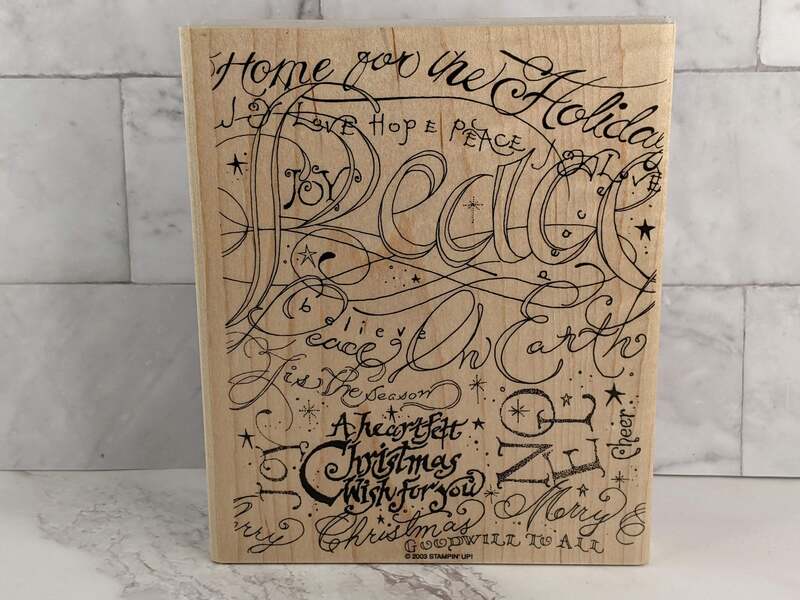 Home for the Holidays
JO LOVE HOPE PEACE JO
LOVE
JOY
Peace
peace
believe
Peace On Earth
'Tis the Season
NOEL
cheer
JOY
A heartfelt
Christmas
Wish for you
Merry
Merry
Christmas
GOODWILL TO ALL
© 2003 STAMPIN' UP!